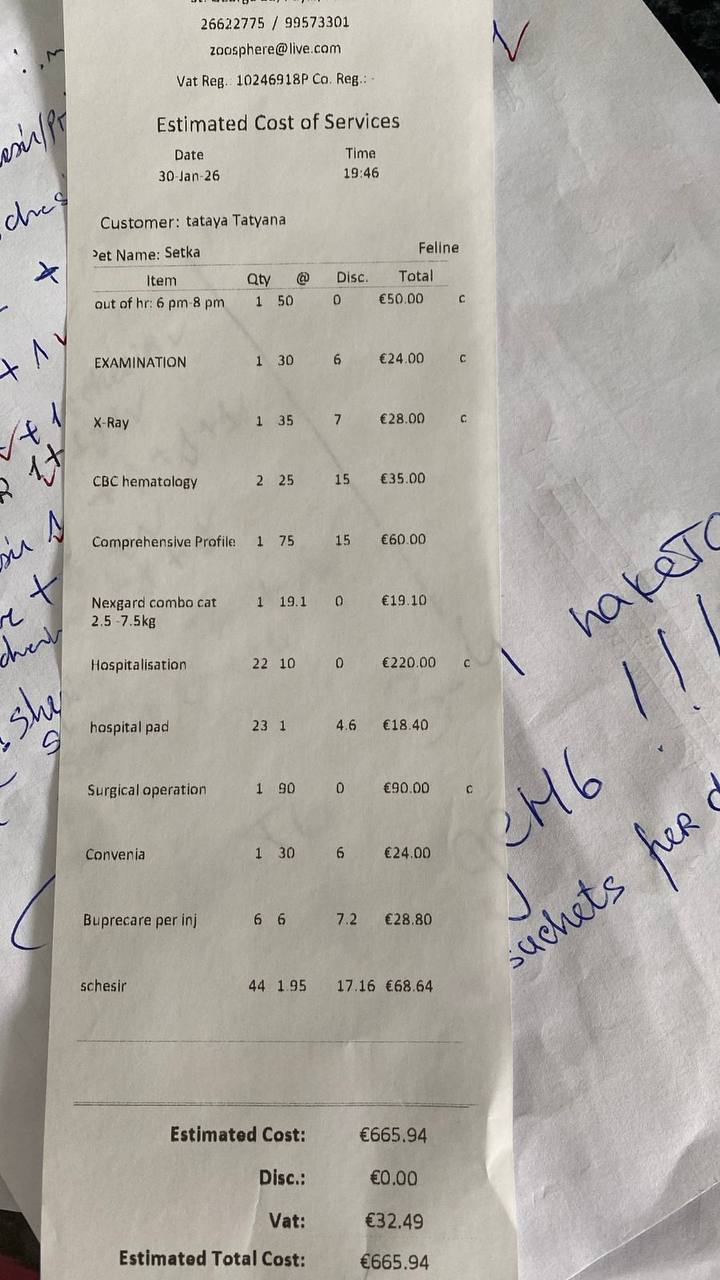 26622775 / 99573301
zoosphere@live.com
Vat Reg.: 10246918P Co. Reg.: -
Estimated Cost of Services
Date Time
30-Jan-26 19:46
Customer: tataya Tatyana
Pet Name: Setka Feline
Item Qty @ Disc. Total
out of hr: 6 pm-8 pm 1 50 0 €50.00 c
EXAMINATION 1 30 6 €24.00 c
X-Ray 1 35 7 €28.00 c
CBC hematology 2 25 15 €35.00
Comprehensive Profile 1 75 15 €60.00
Nexgard combo cat 1 19.1 0 €19.10
2.5 -7.5kg
Hospitalisation 22 10 0 €220.00 c
hospital pad 23 1 4.6 €18.40
Surgical operation 1 90 0 €90.00 c
Convenia 1 30 6 €24.00
Buprecare per inj 6 6 7.2 €28.80
schesir 44 1.95 17.16 €68.64
Estimated Cost: €665.94
Disc.: €0.00
Vat: €32.49
Estimated Total Cost: €665.94
!!!
sachets per